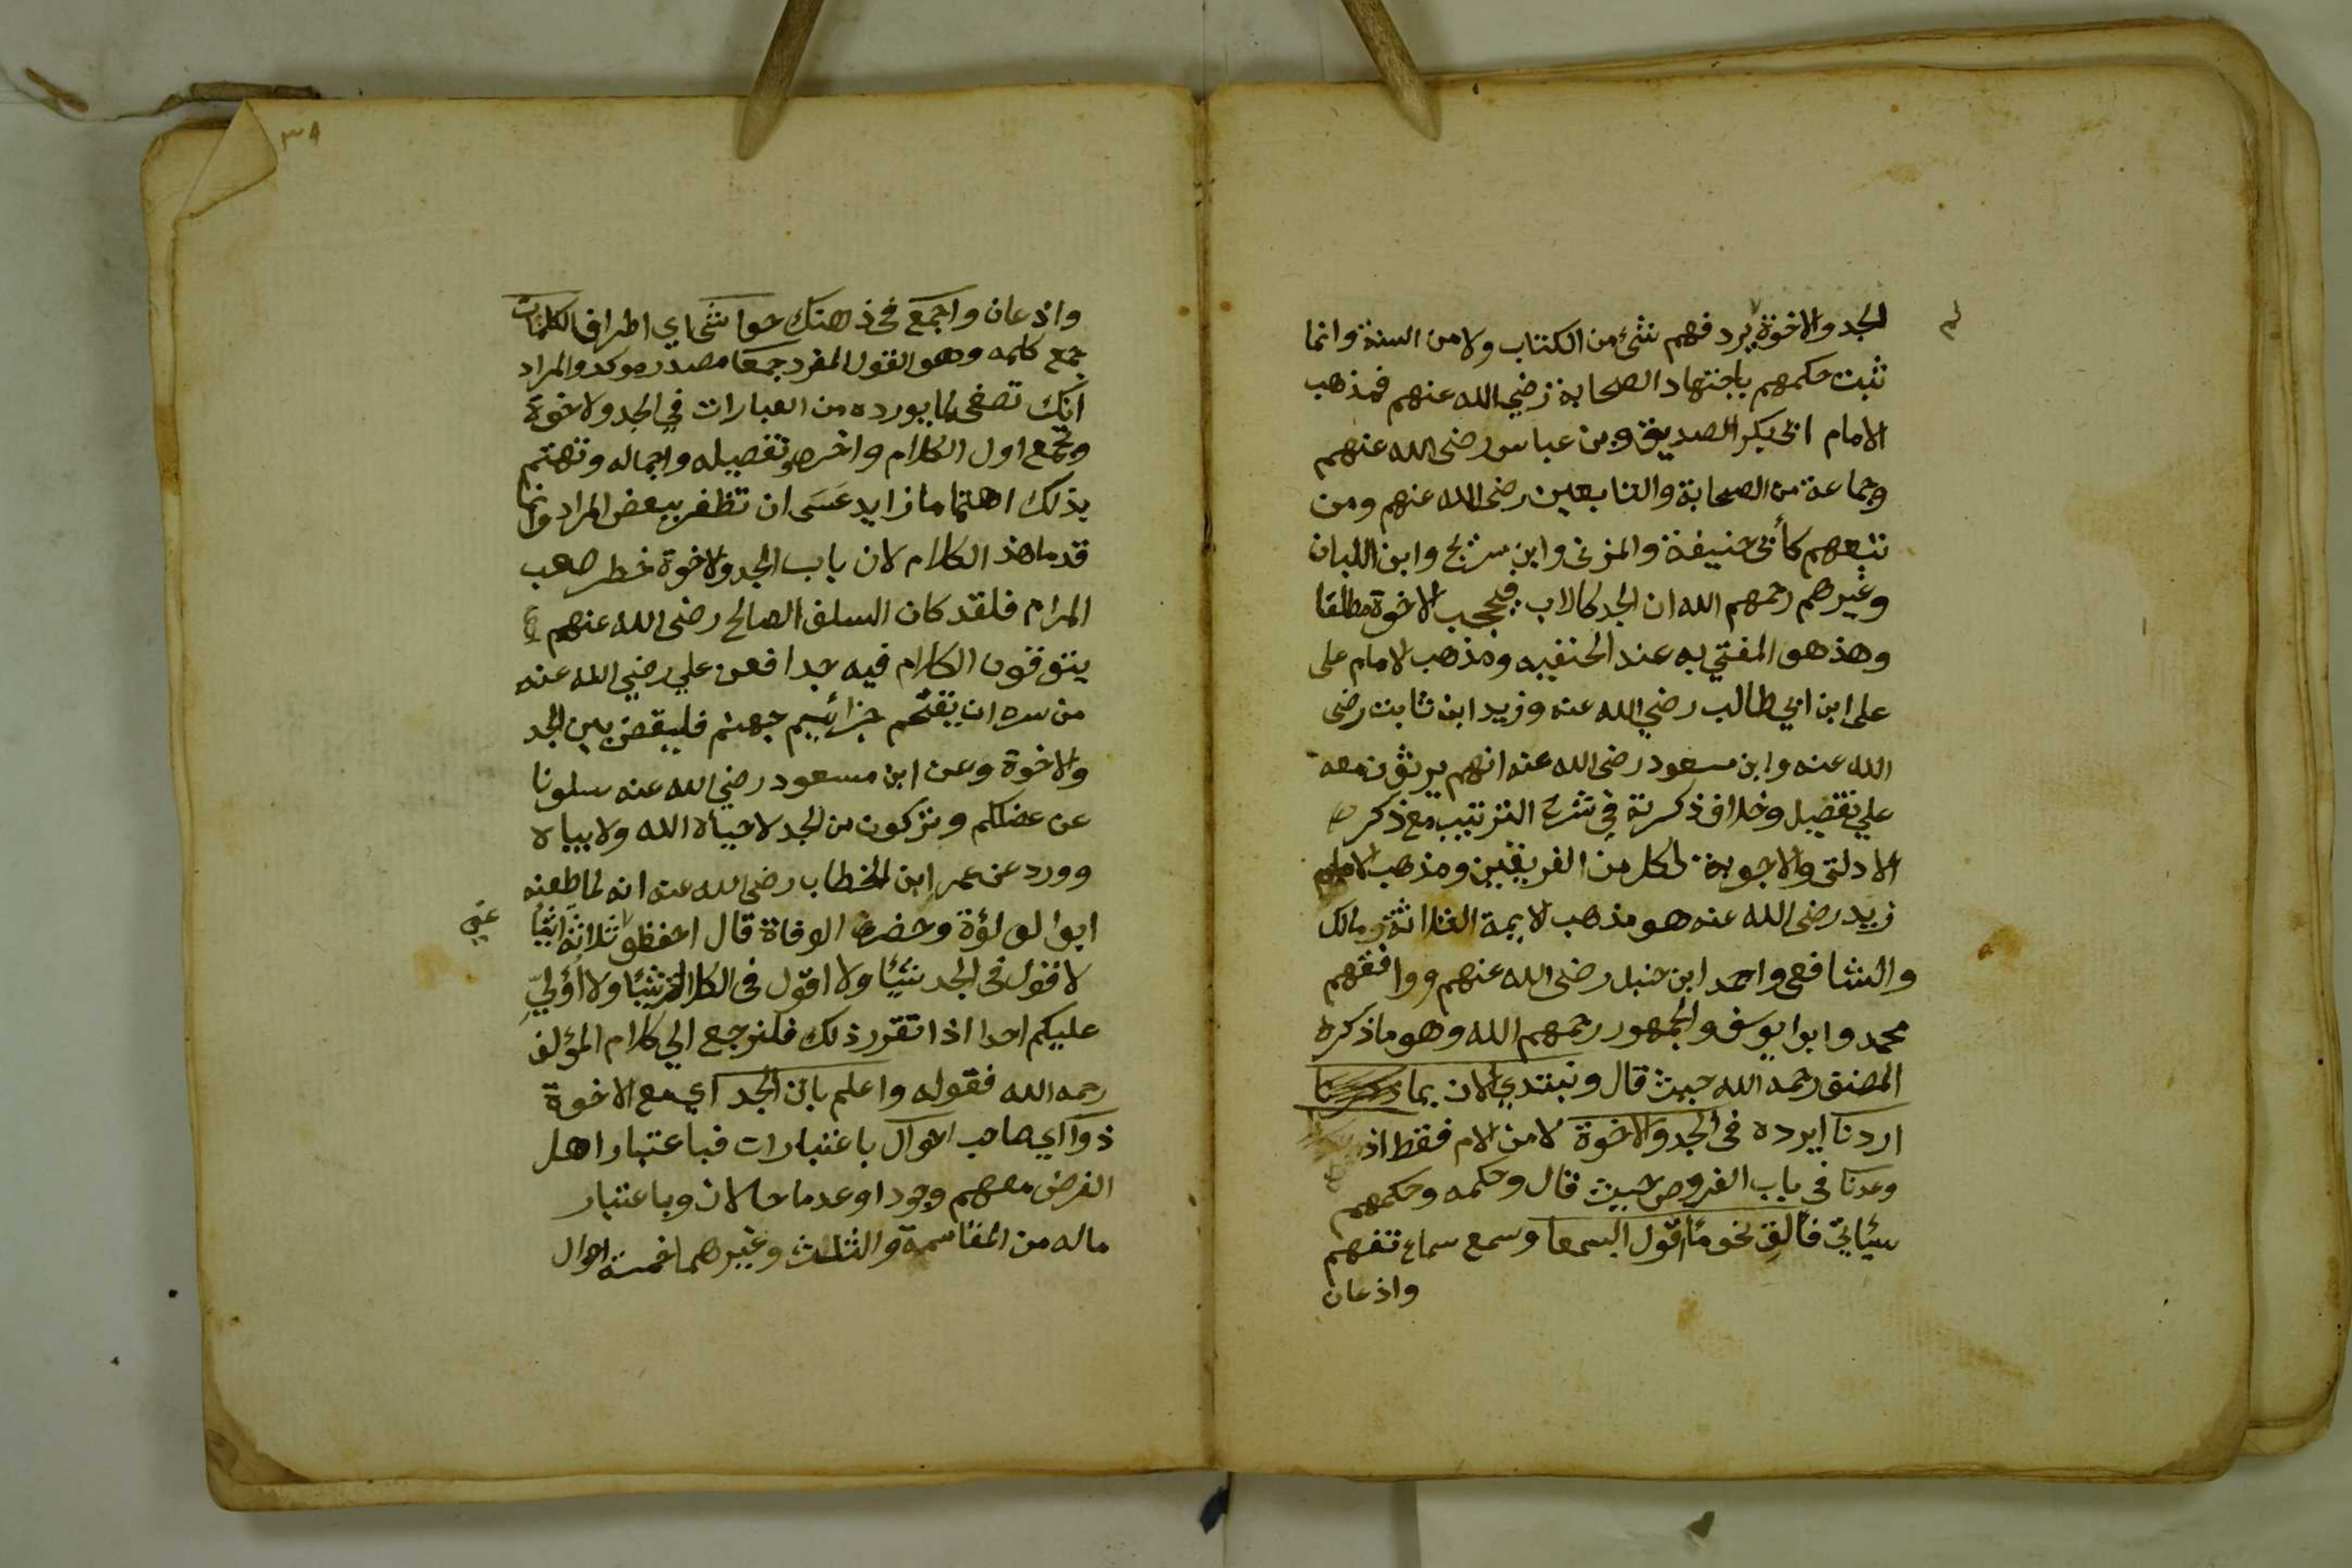 لم
الجد والاخوة يرد فهم شئ من الكتاب ولا من السنة وانما
ثبت حكمهم باجتهاد الصحابة رضي الله عنهم فمذهب
الامام ابى بكر الصديق وبن عباس رضى الله عنهم
وجماعة من الصحابة والتابعين رضى الله عنهم ومن
تبعهم كأبى حنيفة والمزنى وابن سريج وابن اللبان
وغيرهم رحمهم الله ان الجد كالاب فيحجب الاخوة مطلقا
وهذ هو المفتي به عند الحنفيه ومذهب الامام على
على ابن ابي طالب رضي الله عنه وزيد ابن ثابت رضى
الله عنه وابن مسعود رضى الله عنه انهم يرثون معه
علي تفصيل وخلاف ذكرتة في شرح الترتيب مع ذكر
الادلتى والاجوبة لكل من الفريقين ومذهب الامام
زيد رضى الله عنه هو مذهب لايمة الثلاثة ومالك
والشافعى واحمد ابن حنبل رضى الله عنهم ووافقهم
محمد وابوا يوسف والجمهور رحمهم الله وهو ماذكره
المصنف رحمه الله حيث قال ونبتدي الان بما
اردنا ايرده فى الجد والاخوة لا من الام فقط اذ
وعدنا فى باب الفروض حيث قال وحكمه وحكمهم
سيئاتي فألق نحو مأ اقول السمعا وسمع سماع تفهم
واذعان
٣٨
واذعان واجمع فى ذهنك حواشى اي اطراف الكلمات
جمع كلمه وهو القول المفرد جمعا مصدر موكد والمراد
انك تصغى لما يورده من العبارات في الجد ولاخوة
وتجمع اول الكلام واخره وتفصيله واجماله وتهتم
بذلك اهتماما زايد عسى ان تظفر ببعض المراد وانما
قدم هذ الكلام لان باب الجد ولاخوة خطر صعب
المرام فلقد كان السلف الصالح رضى الله عنهم
يتوقون الكلام فيه جدا فعن علي رضي الله عنه
من سره ان يقتحم جرائيم جهنم فليقض بين الجد
والاخوة وعن ابن مسعود رضي الله عنه سلونا
عن عضلكم وتركون من الجد لاحياه الله ولا بياه
وورد عن عمر ابن الخطاب رضى الله عنه انه لما طعنه
ابوا لولؤة وحضرته الوفاة قال احفظوا ثلاثة اشيأ
عنى
لا اقول فى الجد شيئا ولا اقول فى الكلالة شيأ ولا أولي
عليكم احدا اذا تقرر ذلك فلنرجع الي كلام المؤلف
رحمه الله فقوله واعلم بان الجد اي مع الاخوة
ذوا اي صاحب احوال باعتبارات فباعتبار اهل
الفرض معهم وجودا وعدما حالان وباعتبار
ماله من المقاسمة والثلث وغيرهما خمسة احوال